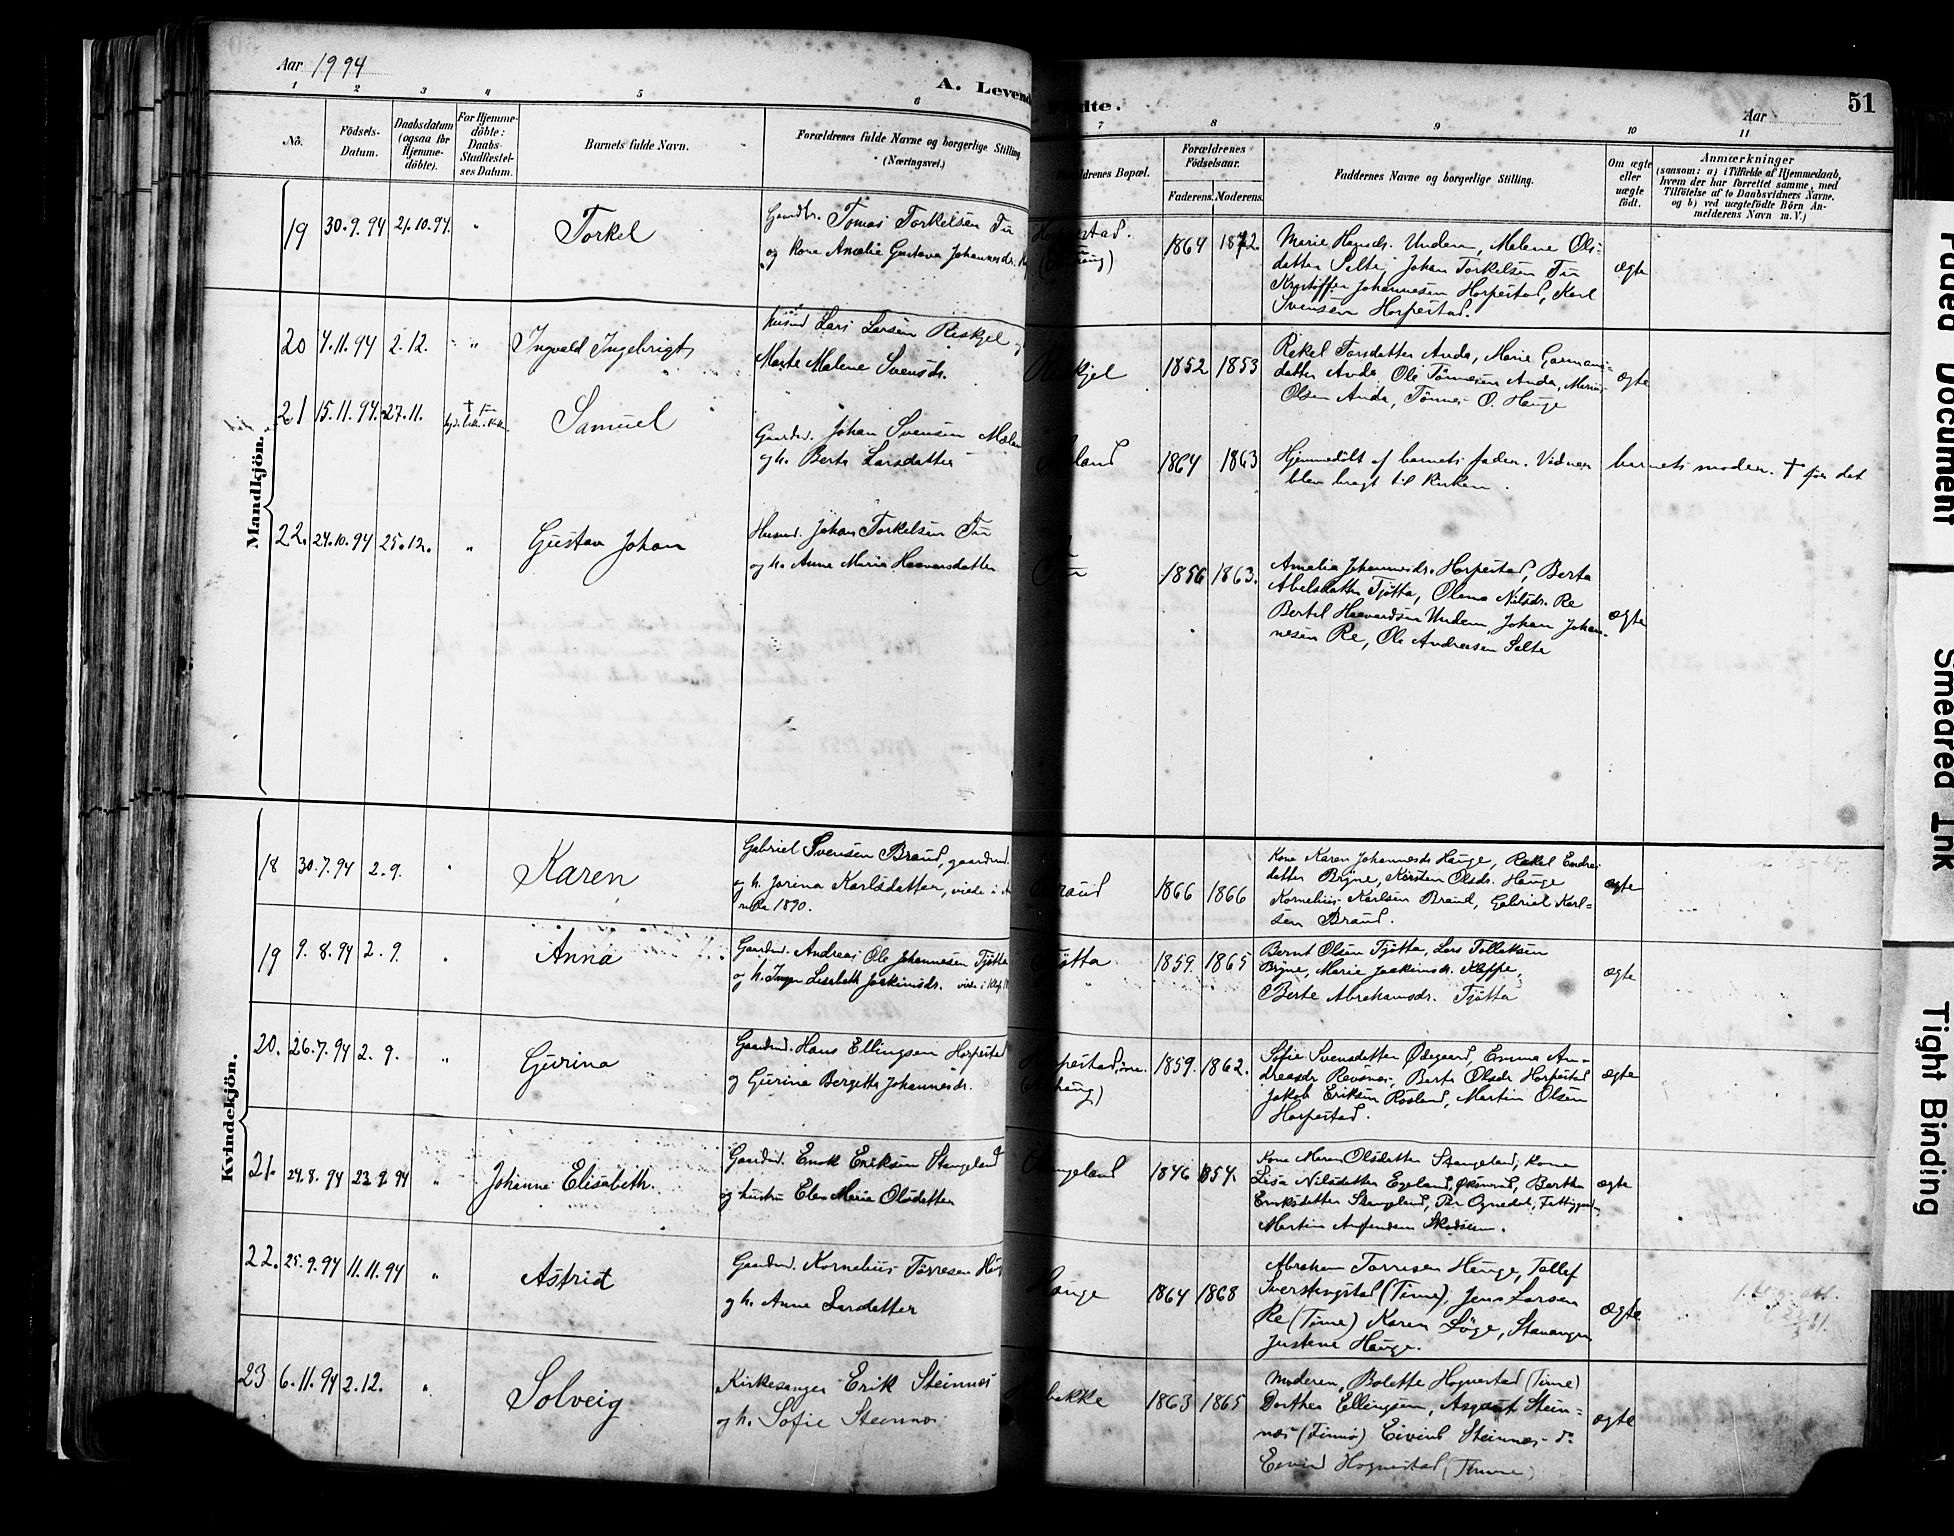 Aar 1994
A. Levende
Fødte.
Aar
51
1 2 3 4 5 6 7 8 9 10 11
No.
Fødsels-
Datum.
Daabsdatum
(ogsaa for
Hjemme-
døbte).
For Hjemme-
døbte:
Daabs-
Stadfæstel-
ses Datum.
Barnets fulde Navn.
Forældrenes fulde Navne og borgerlige Stilling
(Næringsvei.)
Forældrenes Bopæl.
Forældrenes
Fødselsaar.
Faderens. Moderens.
Faddernes Navne og borgerlige Stilling.
Om ægte
eller
uægte
født.
Anmærkninger
(saasom: a) i Tilfælde af Hjemmedaab,
hvem der har forrettet samme, med
Tilføielse af to Daabsvidners Navne.
og b) ved uægtefødte Børn An-
melderens Navn m. V.)
Mandkjön.
19 30.9.94 21.10.94. " Torkel
Gaardbr. Tomas Torkelsen Tu
og kone Amalie Gustava Johannesdr.
Horpestad.
1864 1872.
Marie Hansdr. Undem, Malene Ols-
datter Salte, Johan Torkelsen Tu
Kristoffer Johannesen Horpestad, Karl
Svensen Horpestad.
ægte
20 7.11.94 2.12. " Ingvald Ingebrigt
Husmd Lars Larsen Riskjel
Marte Malene Svensdr.
Riskjel 1852 1853
Rakel Tarsdatter Anda, Marie
datter Anda Ole Tønnesen Anda,
Olsen Anda, Tønnes O. Hauge
ægte
21 15.11.94. 27.11. Samuel
Gaardmd. Johan Svensen
og h. Berta Larsdatter
1864 1863
Hjemmedøbt af barnets fader. Vidner barnets moder. † før det
blev bragt til Kirken.
22. 24.10.94 25.12. " Gustav Johan
Husmd. Johan Torkelsen Tu
og h. Anne Maria Haavarsdatter
Tu 1856 1863.
Amalia Johannesdr. Horpestad, Berta
Abelsdatter Tjøtta, Olena Nilsdr. Re
Bertel Haavardsen Undem, Johan Johan-
nesen Re, Ole Andreasen Salte
ægte
Kvindekjön.
18 30.7.94 2.9. " Karen
Gabriel Svensen Braud, gaardmd.
og h. Jorina Karlsdatter, viede i
1890.
Braud 1866 1866
Kone Karen Johannesdr Hauge, Rakel Endre-
datter Bryne, Kirsten Olsdr. Hauge
Kornelius Karlsen Braud, Gabriel Karl-
sen Braud.
ægte
19 9.8.94 2.9. " Anna
Gaardmd. Andreas Ole Johannesen Tjøtta
og h. Inger Lisabeth Joakimsdr. viede i Klep
Tjøtta 1859. 1865
Bernt Olsen Tjøtta, Lars Tollaksen
Bryne, Marie Joakimsdr. Kleppe,
Berte Abrahamsdr. Tjøtta
ægte
20. 26.7.94 2.9. " Gurina
Gaardmd. Hans Ellingsen Horpestad
og Gurina Bergitte Johannesdr.
Horpestad,
1859. 1862.
Sofie Svensdatter Ødegaard, Emma An-
dreasdr Revsnes, Berta Olsdr Horpestad
Jakob Eriksen Rosland, Martin Olsen
Horpestad.
ægte
21. 24.8.94 23.9.94 " Johanne Elisabeth
Gaardmd. Enok Eriksen Stangeland
og hustru Elen Maria Olsdatter
Stangeland 1846 1854.
Kone Maren Olsdatter Stangeland, Kone
Lisa Nilsdatter Egeland, Økonud, Bertha
Eriksdatter Stangeland, Per Ognedal,
Martin
ægte
22. 25.9.94 11.11.94 " Astrid
Gaardmd. Kornelius Torresen Hauge
og h. Anne Larsdatter
Hauge 1864 1868
Abraham Torresen Hauge, Tollef
Sverstingstad (Time), Jens Larsen
Re (Time) Karen Løge, Stavanger
Justine Hauge.
ægte
23 6.11.94 2.12. " Solveig
Kirkesanger Erik Steinnes
og h. Sofie Steinnes
1863 1865
Moderen, Bolette Hognestad (Time)
Dorthea Ellingsen, Asgaut Stein-
nes (Finnø) Eivind Steinnes
Eivind Hognestad (Time)
ægte
Faded Document
Smeared Ink
Tight Binding